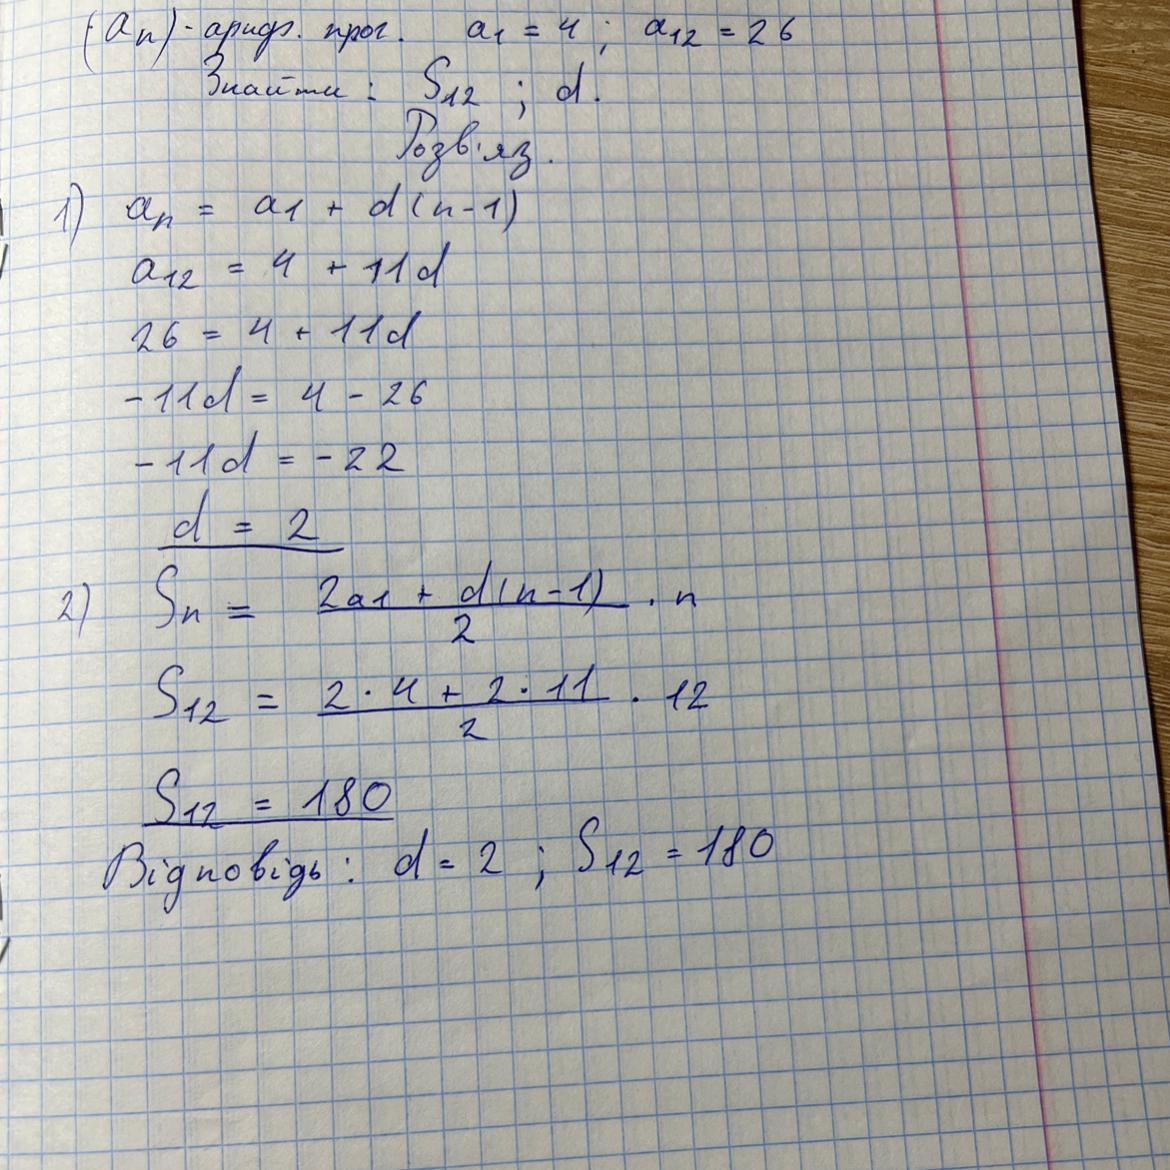 (an) - арифм. прог. a1 = 4 ; a12 = 26
Знайти : S12 ; d.
Розв'яз.
1) an = a1 + d(n-1)
a12 = 4 + 11d
26 = 4 + 11d
-11d = 4 - 26
-11d = -22
d = 2
2) Sn = (2a1 + d(n-1))/2 · n
S12 = (2·4 + 2·11)/2 · 12
S12 = 180
Відповідь : d = 2 ; S12 = 180